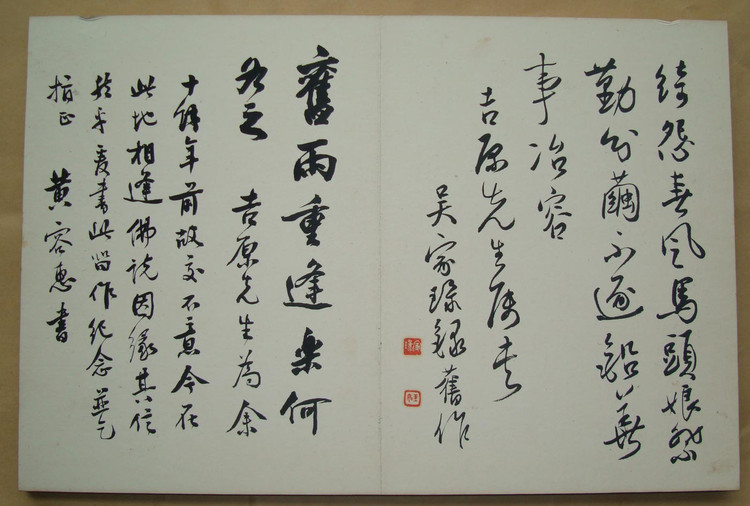 怨春風馬頭娘祭
勤分繭不逾鉛華
事冶容
吉原先生
吴家錄舊作
舊雨重逢樂何
如之 吉原先生為余
十餘年前故交不意今在
此地相逢佛說因緣其信
然乎爰書此留作紀念並乞
指正 黃容惠書